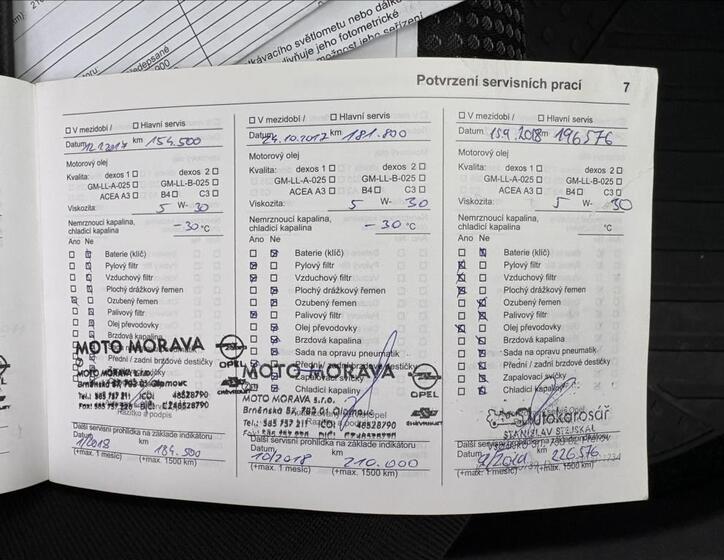 kávacího světlometu nebo dálko
divňuje jeho fotometrické
možnost jeho seřízení
Potvrzení servisních prací 7
V mezidobí / Hlavní servis
Datum km 154.500
Motorový olej
Kvalita: dexos 1 dexos 2
GM-LL-A-025 GM-LL-B-025
ACEA A3 B4 C3
Viskozita: 5 W- 30
Nemrznoucí kapalina,
chladicí kapalina -30 °C
Ano Ne
Baterie (klíč)
Pylový filtr
Vzduchový filtr
Plochý drážkový řemen
Ozubený řemen
Palivový filtr
Olej převodovky
Brzdová kapalina
MOTO MORAVA OPEL
Přední / zadní brzdové destičky
MOTO MORAVA s.r.o.
Brněnská 57, 783 01 Olomouc
Tel.: 585 757 211 IČO: 48528790
CHEVROLET
Razítko a podpis
Další servisní prohlídka na základě indikátoru
1/2018 km 184.500
(+max. 1 měsíc) (+max. 1500 km)
V mezidobí / Hlavní servis
Datum 24.10.2017 km 181.800
Motorový olej
Kvalita: dexos 1 dexos 2
GM-LL-A-025 GM-LL-B-025
ACEA A3 B4 C3
Viskozita: 5 W- 30
Nemrznoucí kapalina,
chladicí kapalina -30 °C
Ano Ne
Baterie (klíč)
Pylový filtr
Vzduchový filtr
Plochý drážkový řemen
Ozubený řemen
Palivový filtr
Olej převodovky
Brzdová kapalina
Sada na opravu pneumatik
Přední / zadní brzdové destičky
Zapalovací svíčky
Chladicí kapaliny
MOTO MORAVA OPEL
MOTO MORAVA s.r.o.
Brněnská 57, 783 01 Olomouc
Tel.: 585 757 211 IČO: 48528790
CHEVROLET
Další servisní prohlídka na základě indikátoru
Datum 10/2018 km 210.000
(+max. 1 měsíc) (+max. 1500 km)
V mezidobí / Hlavní servis
Datum 15.9.2018 km 196576
Motorový olej
Kvalita: dexos 1 dexos 2
GM-LL-A-025 GM-LL-B-025
ACEA A3 B4 C3
Viskozita: 5 W- 30
Nemrznoucí kapalina,
chladicí kapalina °C
Ano Ne
Baterie (klíč)
Pylový filtr
Vzduchový filtr
Plochý drážkový řemen
Ozubený řemen
Palivový filtr
Olej převodovky
Brzdová kapalina
Sada na opravu pneumatik
Přední / zadní brzdové destičky
Zapalovací svíčky
Chladicí kapaliny
Autokarosář
STANISLAV STEJSKAL
Datum km 226.576
(+max. 1 měsíc) (+max. 1500 km)